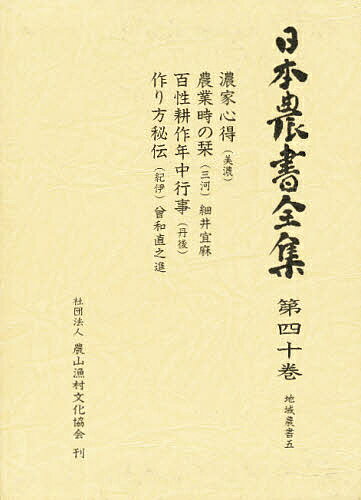 日本農書全集 第四十巻 地域農書五
濃家心得（美濃）
農業時の栞（三河）細井宜麻
百性耕作年中行事（丹後）
作り方秘伝（紀伊）曾和直之進
社団法人 農山漁村文化協会 刊